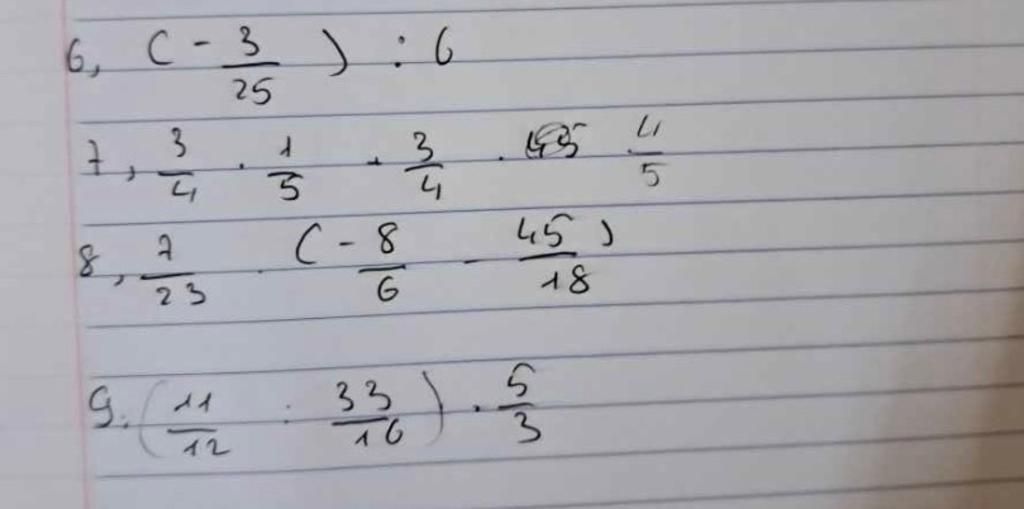 6, (-3/25) : 6
7, 3/4 . 1/5 + 3/4 . 4/5
8, 7/23 . (-8/6 - 45/18)
9. (11/12 : 33/16) . 5/3